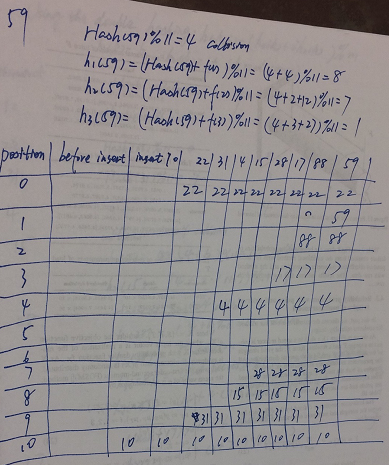 59
Hash(59)%11=4 collision
h1(59)=(Hash(59)+f(1))%11=(4+4)%11=8
h2(59)=(Hash(59)+f(2))%11=(4+2+12)%11=7
h3(59)=(Hash(59)+f(3))%11=(4+3+27)%11=1
position before insert insert 10 22 31 4 15 28 17 88 59
0 22 22 22 22 22 22 22 22
1 59
2 88 88
3 17 17 17
4 4 4 4 4 4 4
5
6
7 28 28 28 28
8 15 15 15 15 15
9 31 31 31 31 31 31 31
10 10 10 10 10 10 10 10 10 10